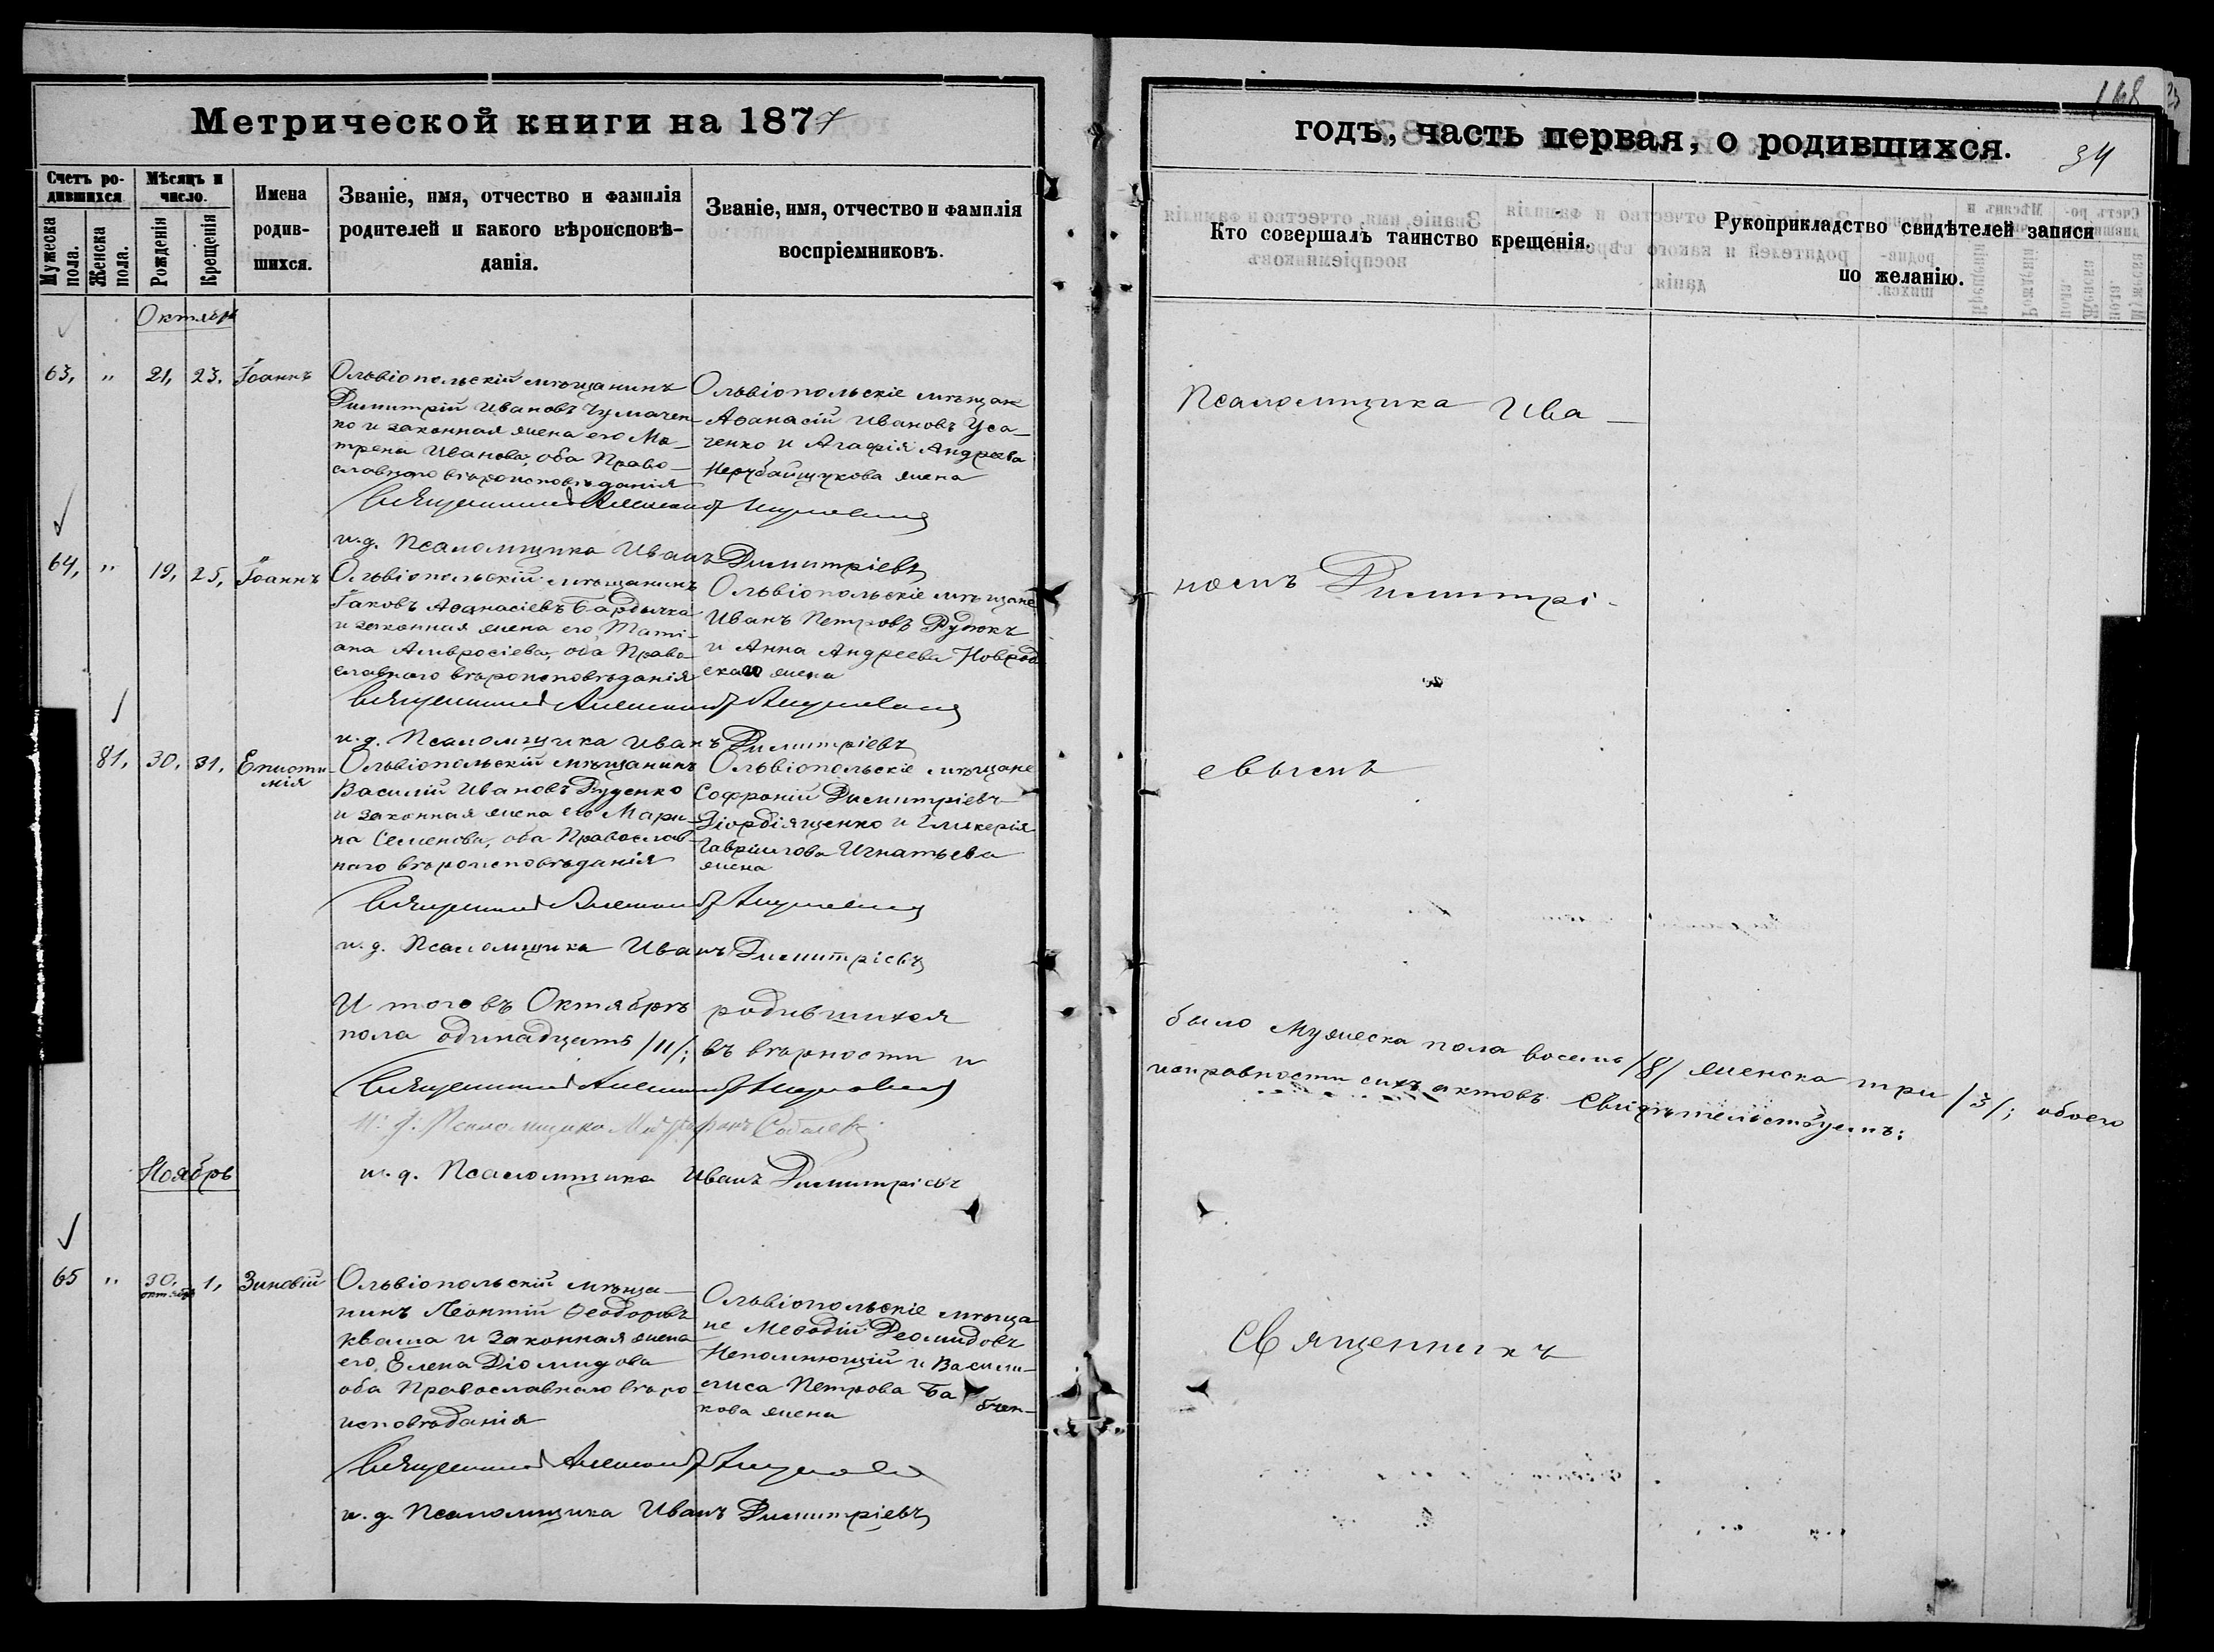 Метрической книги на 1877
годъ, часть первая, о родившихся.
168
34
Счетъ ро-
дившихся
Мужеска пола.
Женска пола.
Мѣсяцъ и
число.
Рожденія
Крещенія
Имена
родив-
шихся.
Званіе, имя, отчество и фамилія
родителей и какого вѣроисповѣ-
данія.
Званіе, имя, отчество и фамилія
воспріемниковъ.
Кто совершалъ таинство крещенія.
Рукоприкладство свидѣтелей записи
по желанію.
Октябрь
63, " 21, 23. Іоаннъ
Ольвіопольскій мѣщанинъ
Димитрій Ивановъ Чумачен-
ко и законная жена его Ма-
трена Иванова, оба Право-
славнаго вѣроисповѣданія
Ольвіопольскіе мѣщан
Аѳанасій Ивановъ Уса-
ченко и Агафія Андреева
Нерубайщукова жена
Псаломщика Ива-
Священникъ
и.д. Псаломщика Иванъ Димитріевъ
64, " 19, 25, Іоаннъ
Ольвіопольскій мѣщанинъ
Іаковъ Аѳанасіевъ Бардычка
и законная жена его Тати-
ана Амвросіева, оба Право-
славнаго вѣроисповѣданія
Ольвіопольскіе мѣщане
Иванъ Петровъ Рудюкъ
и Анна Андреева
жена
номъ Димитрі-
Священникъ
и.д. Псаломщика Иванъ Димитріевъ
81, 30, 31, Еписти-
мія
Ольвіопольскій мѣщанинъ
Василій Ивановъ Руденко
и законная жена его Мари-
на Семенова, оба Православ-
наго вѣроисповѣданія
Ольвіопольскіе мѣщане
Софроній Димитріевъ
и Гликерія
Гаврилова Игнатьева
жена
евымъ
Священникъ
и.д. Псаломщика Иванъ Димитріевъ
Итого въ Октябрѣ родившихся
было мужеска пола восемь /8/ женска три /3/; обоего
пола одинадцать /11/; въ вѣрности и
исправности сихъ актовъ свидѣтельствуемъ:
Священникъ
И. д. Псаломщика
и.д. Псаломщика Иванъ Димитріевъ
Ноябрь
65 " 30, октября 1, Зиновій
Ольвіопольскій мѣща-
нинъ Леонтій Ѳеодоровъ
Кваша и законная жена
его Елена Діомидова
оба Православнаго вѣро-
исповѣданія
Ольвіопольскіе мѣща-
не Меѳодій Деомидовъ
Непомнющій и Васили-
лиса Петрова Бабчен-
кова жена
Священникъ
Священникъ
и.д. Псаломщика Иванъ Димитріевъ